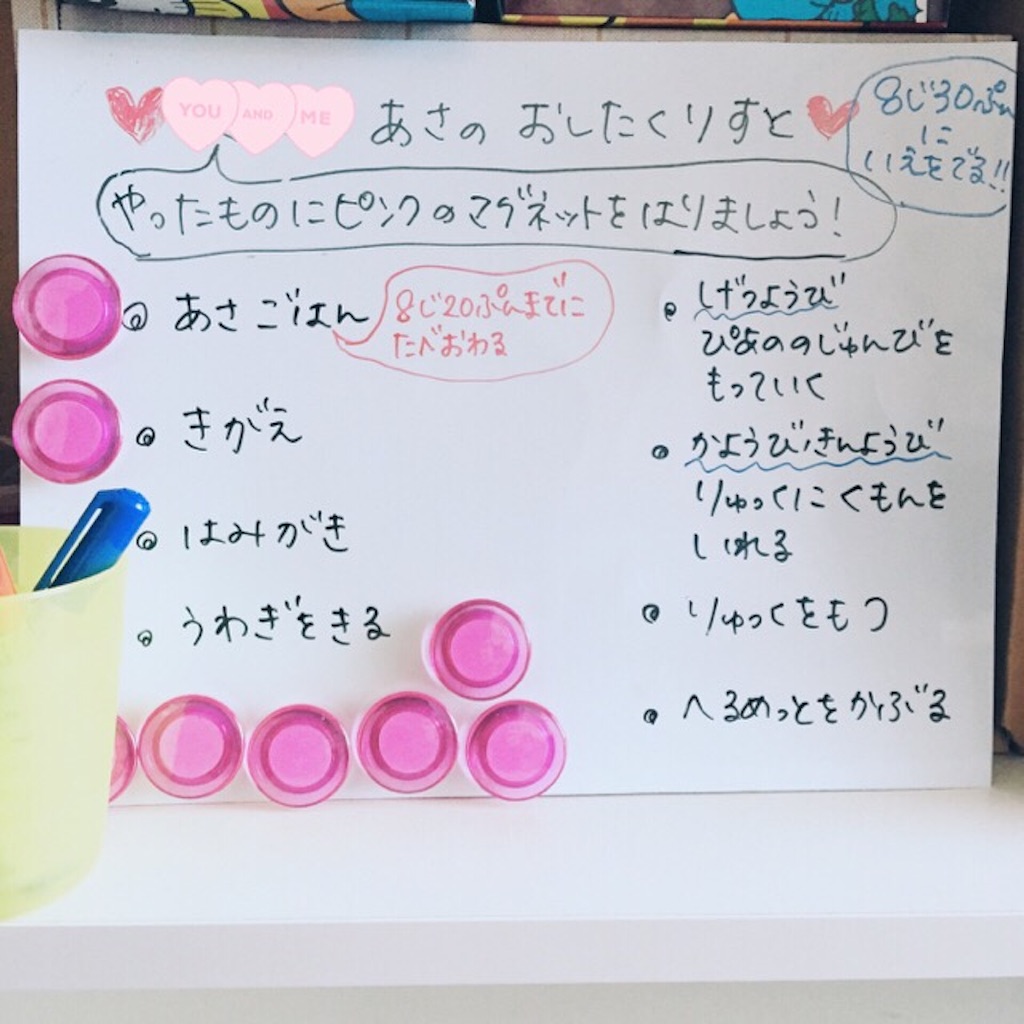 YOU AND ME
あさの おしたくりすと
8じ30ぷん
に
いえをでる!!
やったものにピンクのマグネットをはりましょう!
あさごはん
8じ20ぷんまでに
たべおわる
きがえ
はみがき
うわぎをきる
げつようび
ぴあののじゅんびを
もっていく
かようび、きんようび
りゅっくにくもんを
いれる
りゅっくをもつ
へるめっとをかぶる